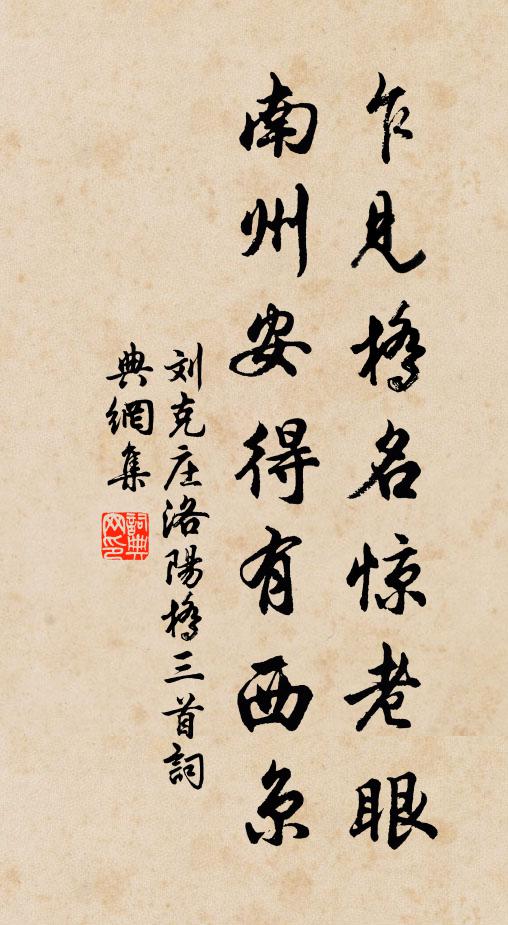 乍見橋名惊老眼
南州安得有西京
刘克庄洛陽橋三首詞
典網集
詞典
网印